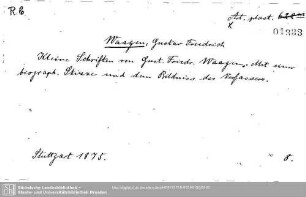 R.E
Art. plast.
01333
Waagen, Gustav Friedrich
Kleine Schriften von Gust. Friedr. Waagen. Mit einer
biograph. Skizze und dem Bildniss des Verfassers.
Stuttgart 1875. 8.
Sächsische Landesbibliothek –
Staats- und Universitätsbibliothek Dresden